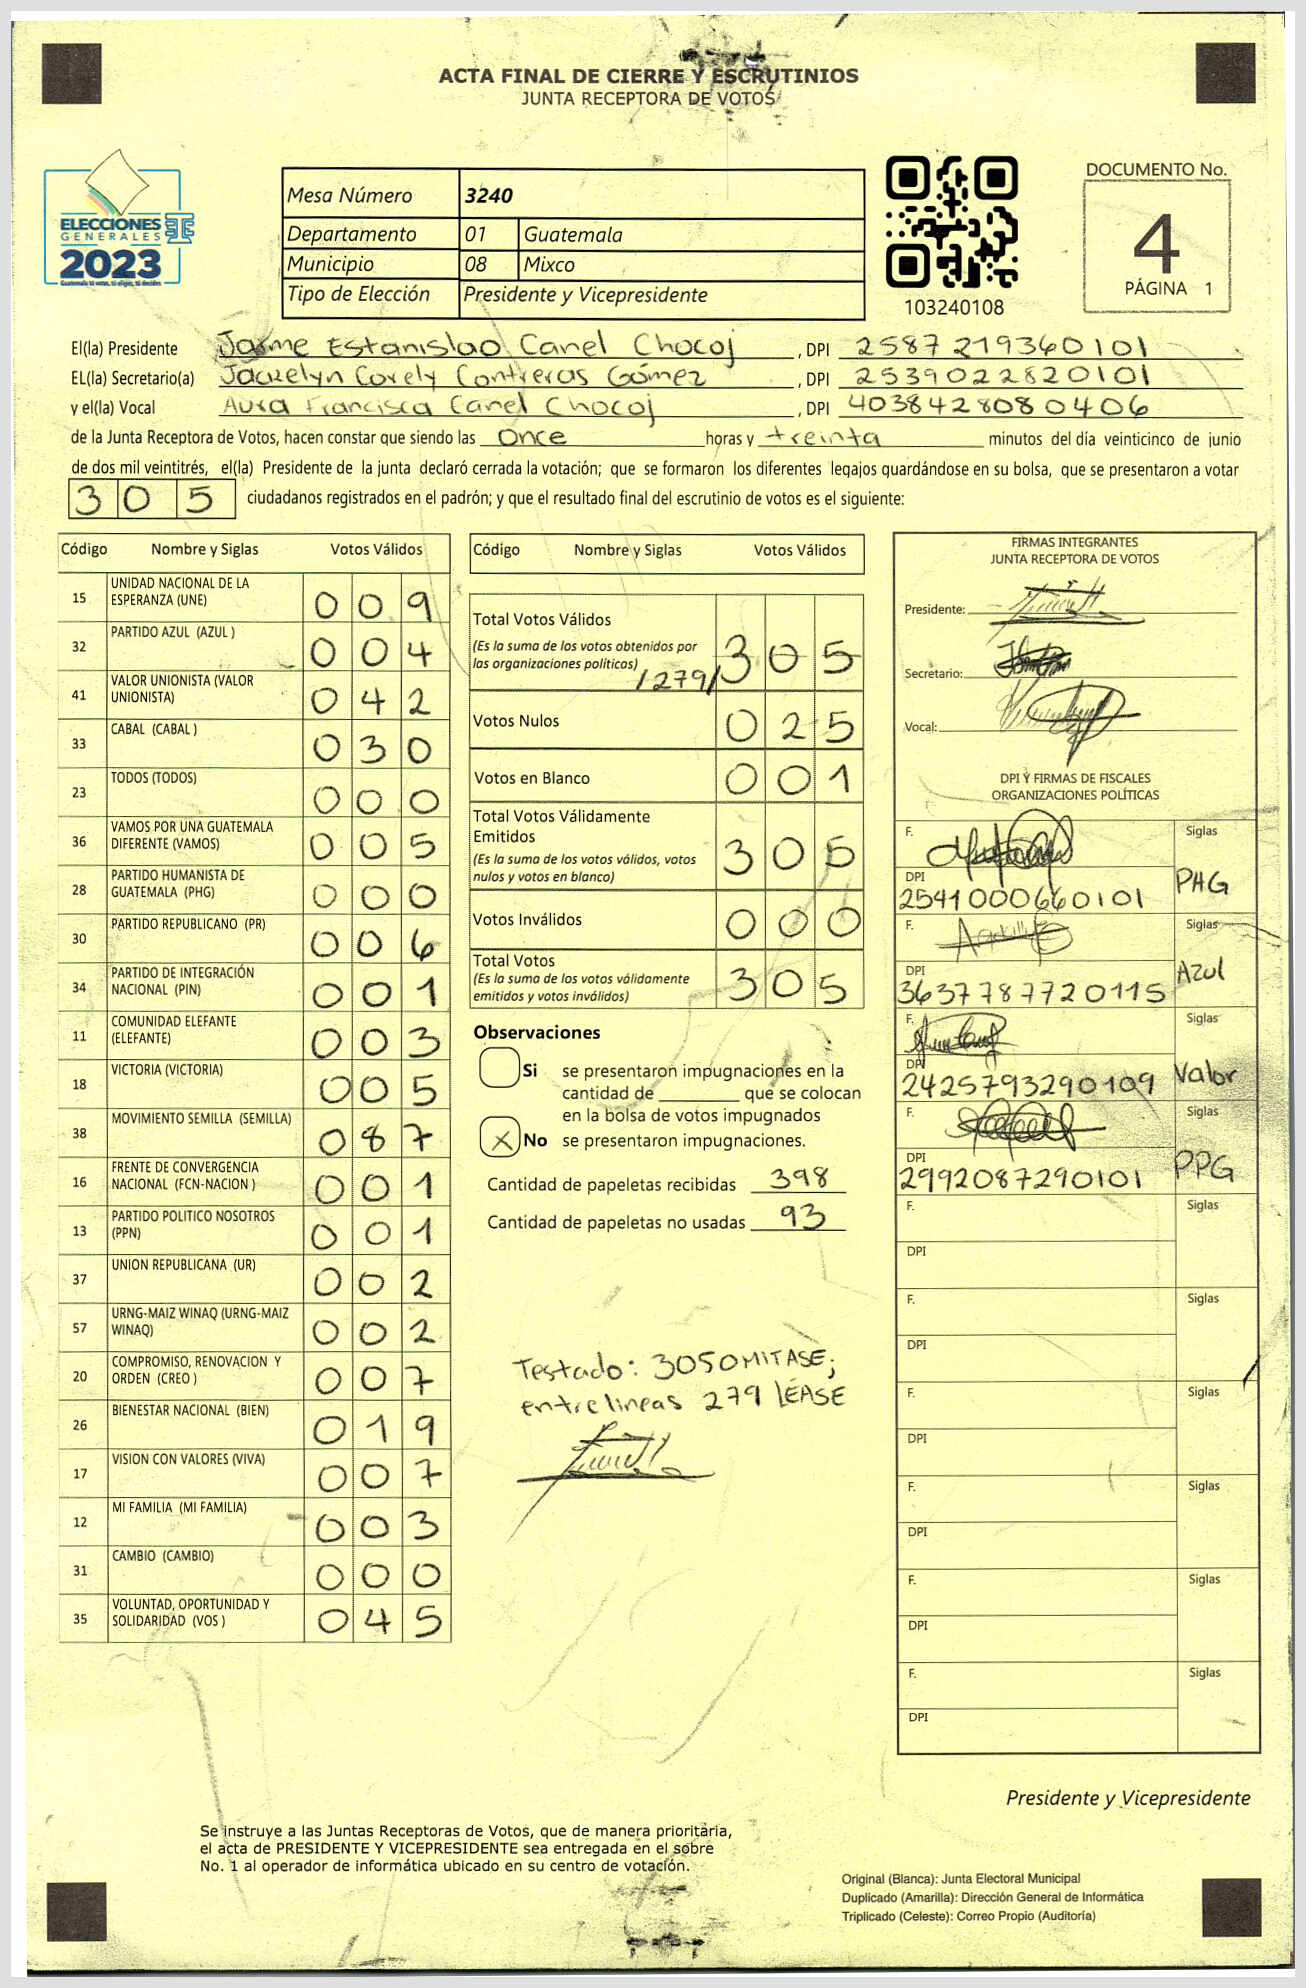 ACTA FINAL DE CIERRE Y ESCRUTINIOS
JUNTA RECEPTORA DE VOTOS
ELECCIONES
GENERALES
2023
Guatemala tú votas, tú eliges, tú decides
Mesa Número 3240
Departamento 01 Guatemala
Municipio 08 Mixco
Tipo de Elección Presidente y Vicepresidente
103240108
DOCUMENTO No.
4
PÁGINA 1
El(la) Presidente Jaime Estanislao Canel Chocoj, DPI 2587219360101
EL(la) Secretario(a) Jackelyn Corely Contreras Gómez, DPI 2539022820101
y el(la) Vocal Aura Francisca Canel Chocoj, DPI 4038428080406
de la Junta Receptora de Votos, hacen constar que siendo las once horas y treinta minutos del día veinticinco de junio
de dos mil veintitrés, el(la) Presidente de la junta declaró cerrada la votación; que se formaron los diferentes legajos guardándose en su bolsa, que se presentaron a votar
305 ciudadanos registrados en el padrón; y que el resultado final del escrutinio de votos es el siguiente:
Código Nombre y Siglas Votos Válidos
15 UNIDAD NACIONAL DE LA ESPERANZA (UNE) 009
32 PARTIDO AZUL (AZUL ) 004
41 VALOR UNIONISTA (VALOR UNIONISTA) 042
33 CABAL (CABAL ) 030
23 TODOS (TODOS) 000
36 VAMOS POR UNA GUATEMALA DIFERENTE (VAMOS) 005
28 PARTIDO HUMANISTA DE GUATEMALA (PHG) 000
30 PARTIDO REPUBLICANO (PR) 006
34 PARTIDO DE INTEGRACIÓN NACIONAL (PIN) 001
11 COMUNIDAD ELEFANTE (ELEFANTE) 003
18 VICTORIA (VICTORIA) 005
38 MOVIMIENTO SEMILLA (SEMILLA) 087
16 FRENTE DE CONVERGENCIA NACIONAL (FCN-NACION ) 001
13 PARTIDO POLITICO NOSOTROS (PPN) 001
37 UNION REPUBLICANA (UR) 002
57 URNG-MAIZ WINAQ (URNG-MAIZ WINAQ) 002
20 COMPROMISO, RENOVACION Y ORDEN (CREO ) 007
26 BIENESTAR NACIONAL (BIEN) 019
17 VISION CON VALORES (VIVA) 007
12 MI FAMILIA (MI FAMILIA) 003
31 CAMBIO (CAMBIO) 000
35 VOLUNTAD, OPORTUNIDAD Y SOLIDARIDAD (VOS ) 045
Código Nombre y Siglas Votos Válidos
Total Votos Válidos
(Es la suma de los votos obtenidos por
las organizaciones políticas)
/279/ 305
Votos Nulos 025
Votos en Blanco 001
Total Votos Válidamente
Emitidos
(Es la suma de los votos válidos, votos
nulos y votos en blanco)
305
Votos Inválidos 000
Total Votos
(Es la suma de los votos válidamente
emitidos y votos inválidos)
305
Observaciones
Si se presentaron impugnaciones en la
cantidad de ________ que se colocan
en la bolsa de votos impugnados
X No se presentaron impugnaciones.
Cantidad de papeletas recibidas 398
Cantidad de papeletas no usadas 93
Testado: 305 OMITASE;
entrelineas 279 LÉASE
FIRMAS INTEGRANTES
JUNTA RECEPTORA DE VOTOS
Presidente:
Secretario:
Vocal:
DPI Y FIRMAS DE FISCALES
ORGANIZACIONES POLÍTICAS
F. Siglas
DPI PHG
2541000660101
F. Siglas
DPI Azul
3637787720115
F. Siglas
DPI Valor
2425793290109
F. Siglas
DPI PPG
2992087290101
F. Siglas
DPI
F. Siglas
DPI
F. Siglas
DPI
F. Siglas
DPI
F. Siglas
DPI
F. Siglas
DPI
Presidente y Vicepresidente
Se instruye a las Juntas Receptoras de Votos, que de manera prioritaria,
el acta de PRESIDENTE Y VICEPRESIDENTE sea entregada en el sobre
No. 1 al operador de informática ubicado en su centro de votación.
Original (Blanca): Junta Electoral Municipal
Duplicado (Amarilla): Dirección General de Informática
Triplicado (Celeste): Correo Propio (Auditoría)